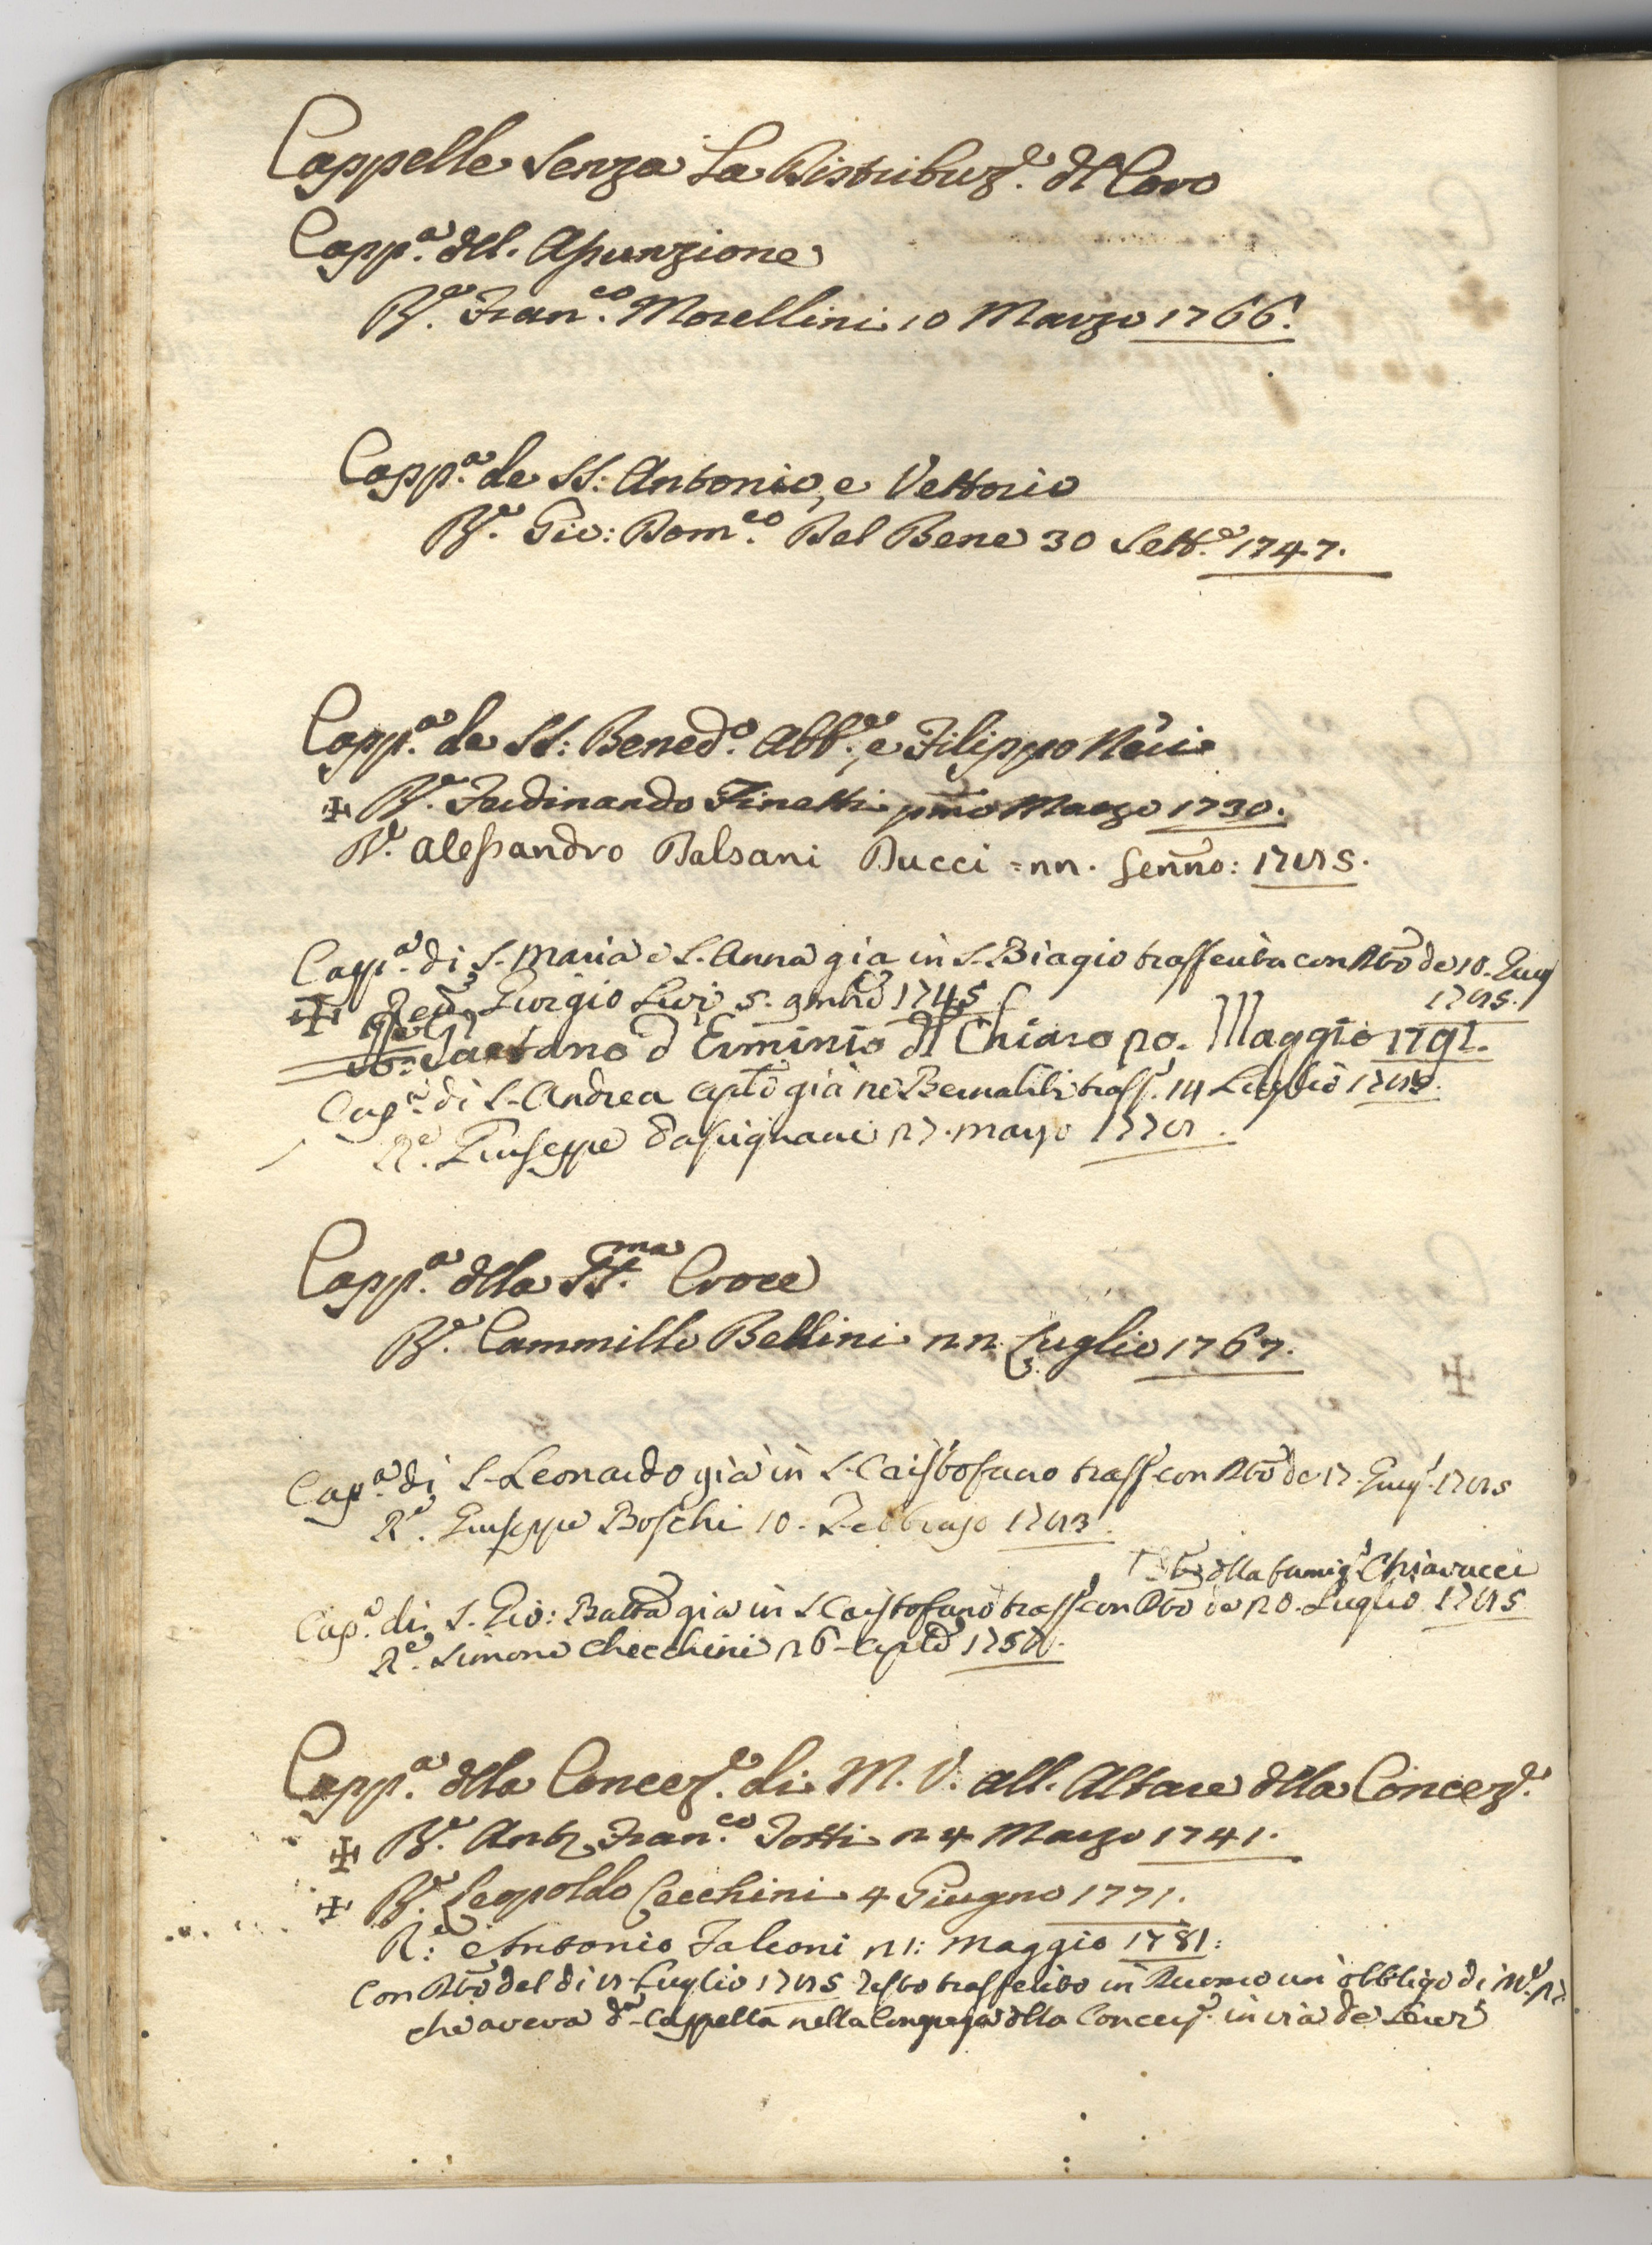 Cappelle Senza La Distribuz.e dl Coro
Capp.a dell. Assunzione
R.e Fran.co Morellini 10 Marzo 1766.
Capp.a de SS: Antonio, e Vettorio
R.e Gio: Dom.co Del Bene 30 Sett.e 1747.
Capp.a de SS: Bened.o Abb.e, e Filippo Neri
✠ R.e Ferdinando Finetti pmo Marzo 1730.
R.e Alessandro Balsani Bucci 22. Genno: 1785.
Capp.a di S. Maria e S. Anna già in S. Biagio trasferita con Rto de 18. Giug
1785.
✠ Giorgio 5. 1745
Gaetano d Erminio dl Chiaro 20. Maggio 1791.
Cap.a di S. Andrea Aplo già ne trasf. 14 Luglio
R.e Giuseppe 27. marzo
Capp.a dlla SS.ma Croce
R.e Cammillo Bellini 22. Luglio 1767.
Cap.a di S. Leonardo già in S. Cristofano trasf. con Rto de 17. Giug. 1785
R.e Giuseppe Boschi 10. Febbrajo 1783.
dlla famig. Chiavucci
Cap.a di S. Gio: Batta già in S. Cristofano trasf. con Rto de 20. Luglio 1785
R.e Simone Checchini 26
Capp.a dlla Concez.e di M. V. all. Altare dlla Concez.e
✠ R.e Ant. Fran.co Totti 24 Marzo 1741.
✠ R.e Leopoldo Cecchini 4 Giugno 1771.
R.e Antonio Falconi 21: Maggio 1781:
Con Rto del di 8 Luglio 1785 resto trasferito in Duomo un obbligo di
che aveva d.a Cappella nella Congrega dlla Concez. in via de